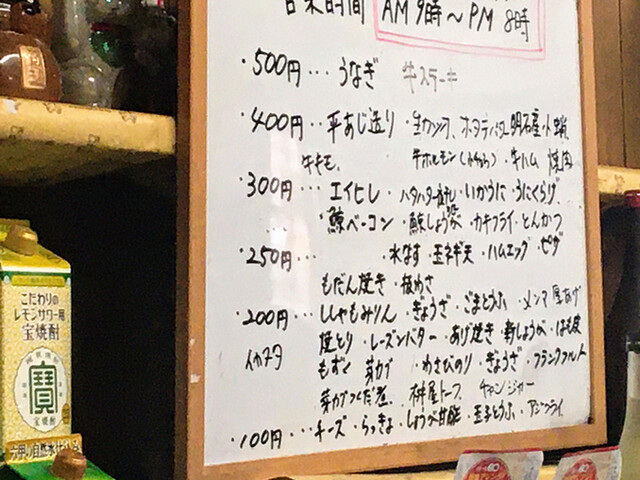 営業時間 AM 9時～PM 8時
・500円… うなぎ 牛ステーキ
・400円… 平あじ造り・生カツオ、ホタテバター 明石産小蛸
牛キモ、 牛ホルモン 牛ハム 焼肉
・300円… エイヒレ・ハタハタ一夜干し・いかうに・うにくらげ
・鯨ベーコン・鯨しょうが煮・カキフライ・とんかつ
・250円… 水なす・玉ネギ天・ハムエッグ・ピザ
もだん焼き・板わさ
・200円… ししゃもみりん・ぎょうざ・ごまとうふ・メンマ 厚あげ
焼とり・レーズンバター・あげ焼き・新しょうが・はも皮
イカヌタ もずく 芽カブ わさびのり・ぎょうざ・フランクフルト
芽カブつくだ煮、枡屋トーフ、チャンジャー
・100円… チーズ・らっきょ・しょうが甘酢・玉子とうふ・アジフライ
こだわりの
レモンサワー用
宝焼酎
寶
宝焼酎